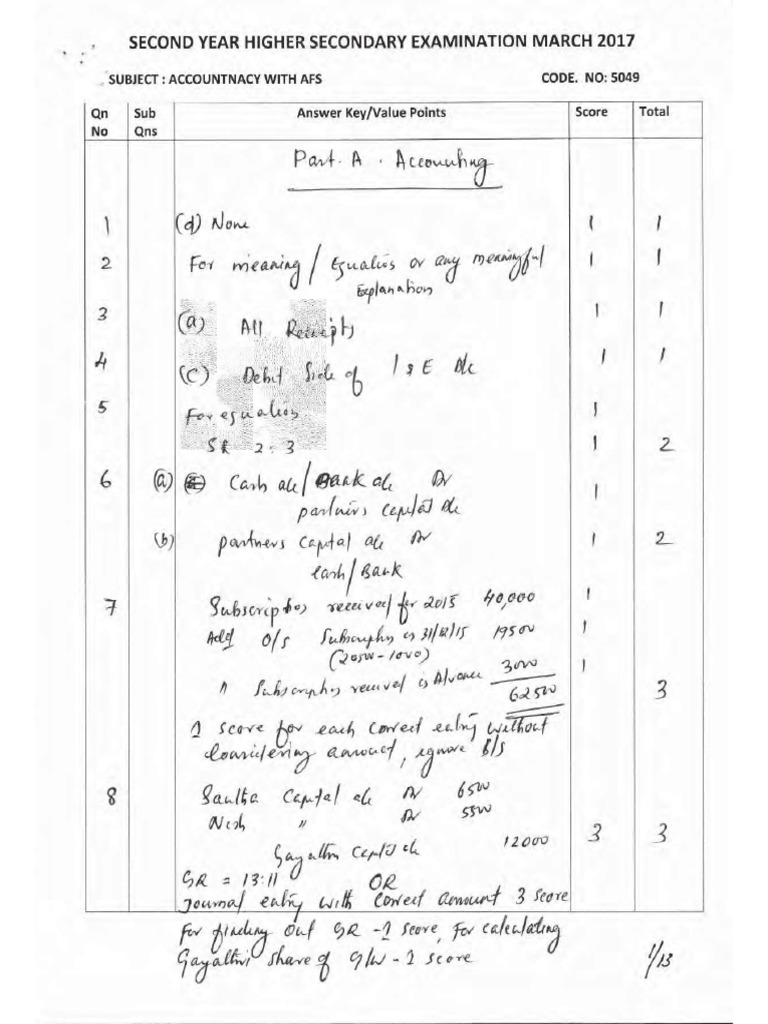 SECOND YEAR HIGHER SECONDARY EXAMINATION MARCH 2017
SUBJECT : ACCOUNTNACY WITH AFS CODE. NO: 5049
Qn No Sub Qns Answer Key/Value Points Score Total
Part. A . Accounting
1 (d) None 1 1
2 For meaning / Equation or any meaningful 1 1
Explanation
3 (a) All Receipts 1 1
4 (C) Debit Side of I & E A/c 1 1
5 For equation 1
SR 2:3 1 2
6 (a) Cash a/c / Bank a/c Dr 1
partners capital a/c
(b) partners Capital a/c Dr 1 2
Cash/Bank
7 Subscription received for 2015 40,000 1
Add O/S Subscription as 31/12/15 19500 1
(20500-1000)
" Subscription received in Advance 3000 1
62500 3
1 score for each correct entry without
considering amount, ignore B/S
8 Capital a/c Dr 6500
" Dr 5500
Gayathri Capital a/c 12000 3 3
GR = 13:11 OR
Journal entry with correct amount 3 score
For finding out GR -1 score, For calculating
Gayathri share of G/W - 1 score
1/13